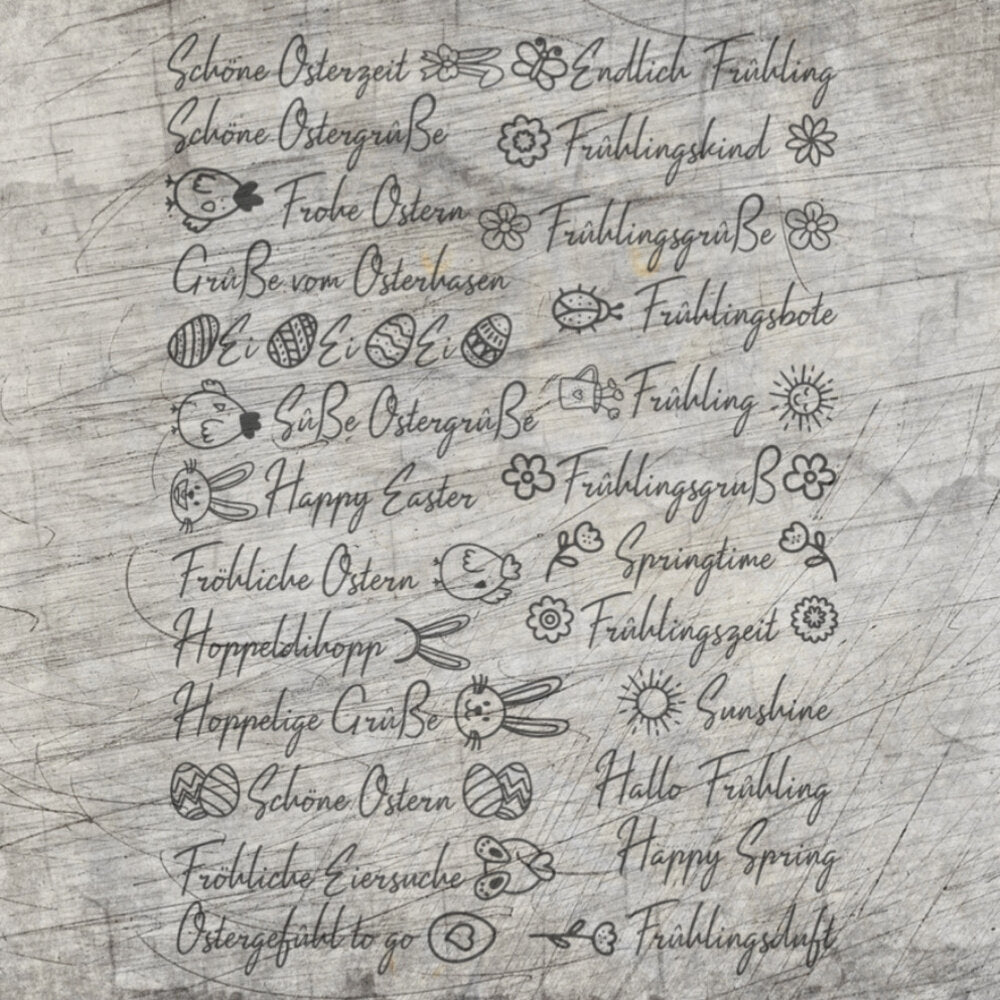 Schöne Osterzeit
Schöne Ostergrüße
Frohe Ostern
Grüße vom Osterhasen
Ei Ei Ei
Süße Ostergrüße
Happy Easter
Fröhliche Ostern
Hoppeldihopp
Hoppelige Grüße
Schöne Ostern
Fröhliche Eiersuche
Ostergefühl to go
Endlich Frühling
Frühlingskind
Frühlingsgrüße
Frühlingsbote
Frühling
Frühlingsgruß
Springtime
Frühlingszeit
Sunshine
Hallo Frühling
Happy Spring
Frühlingsduft